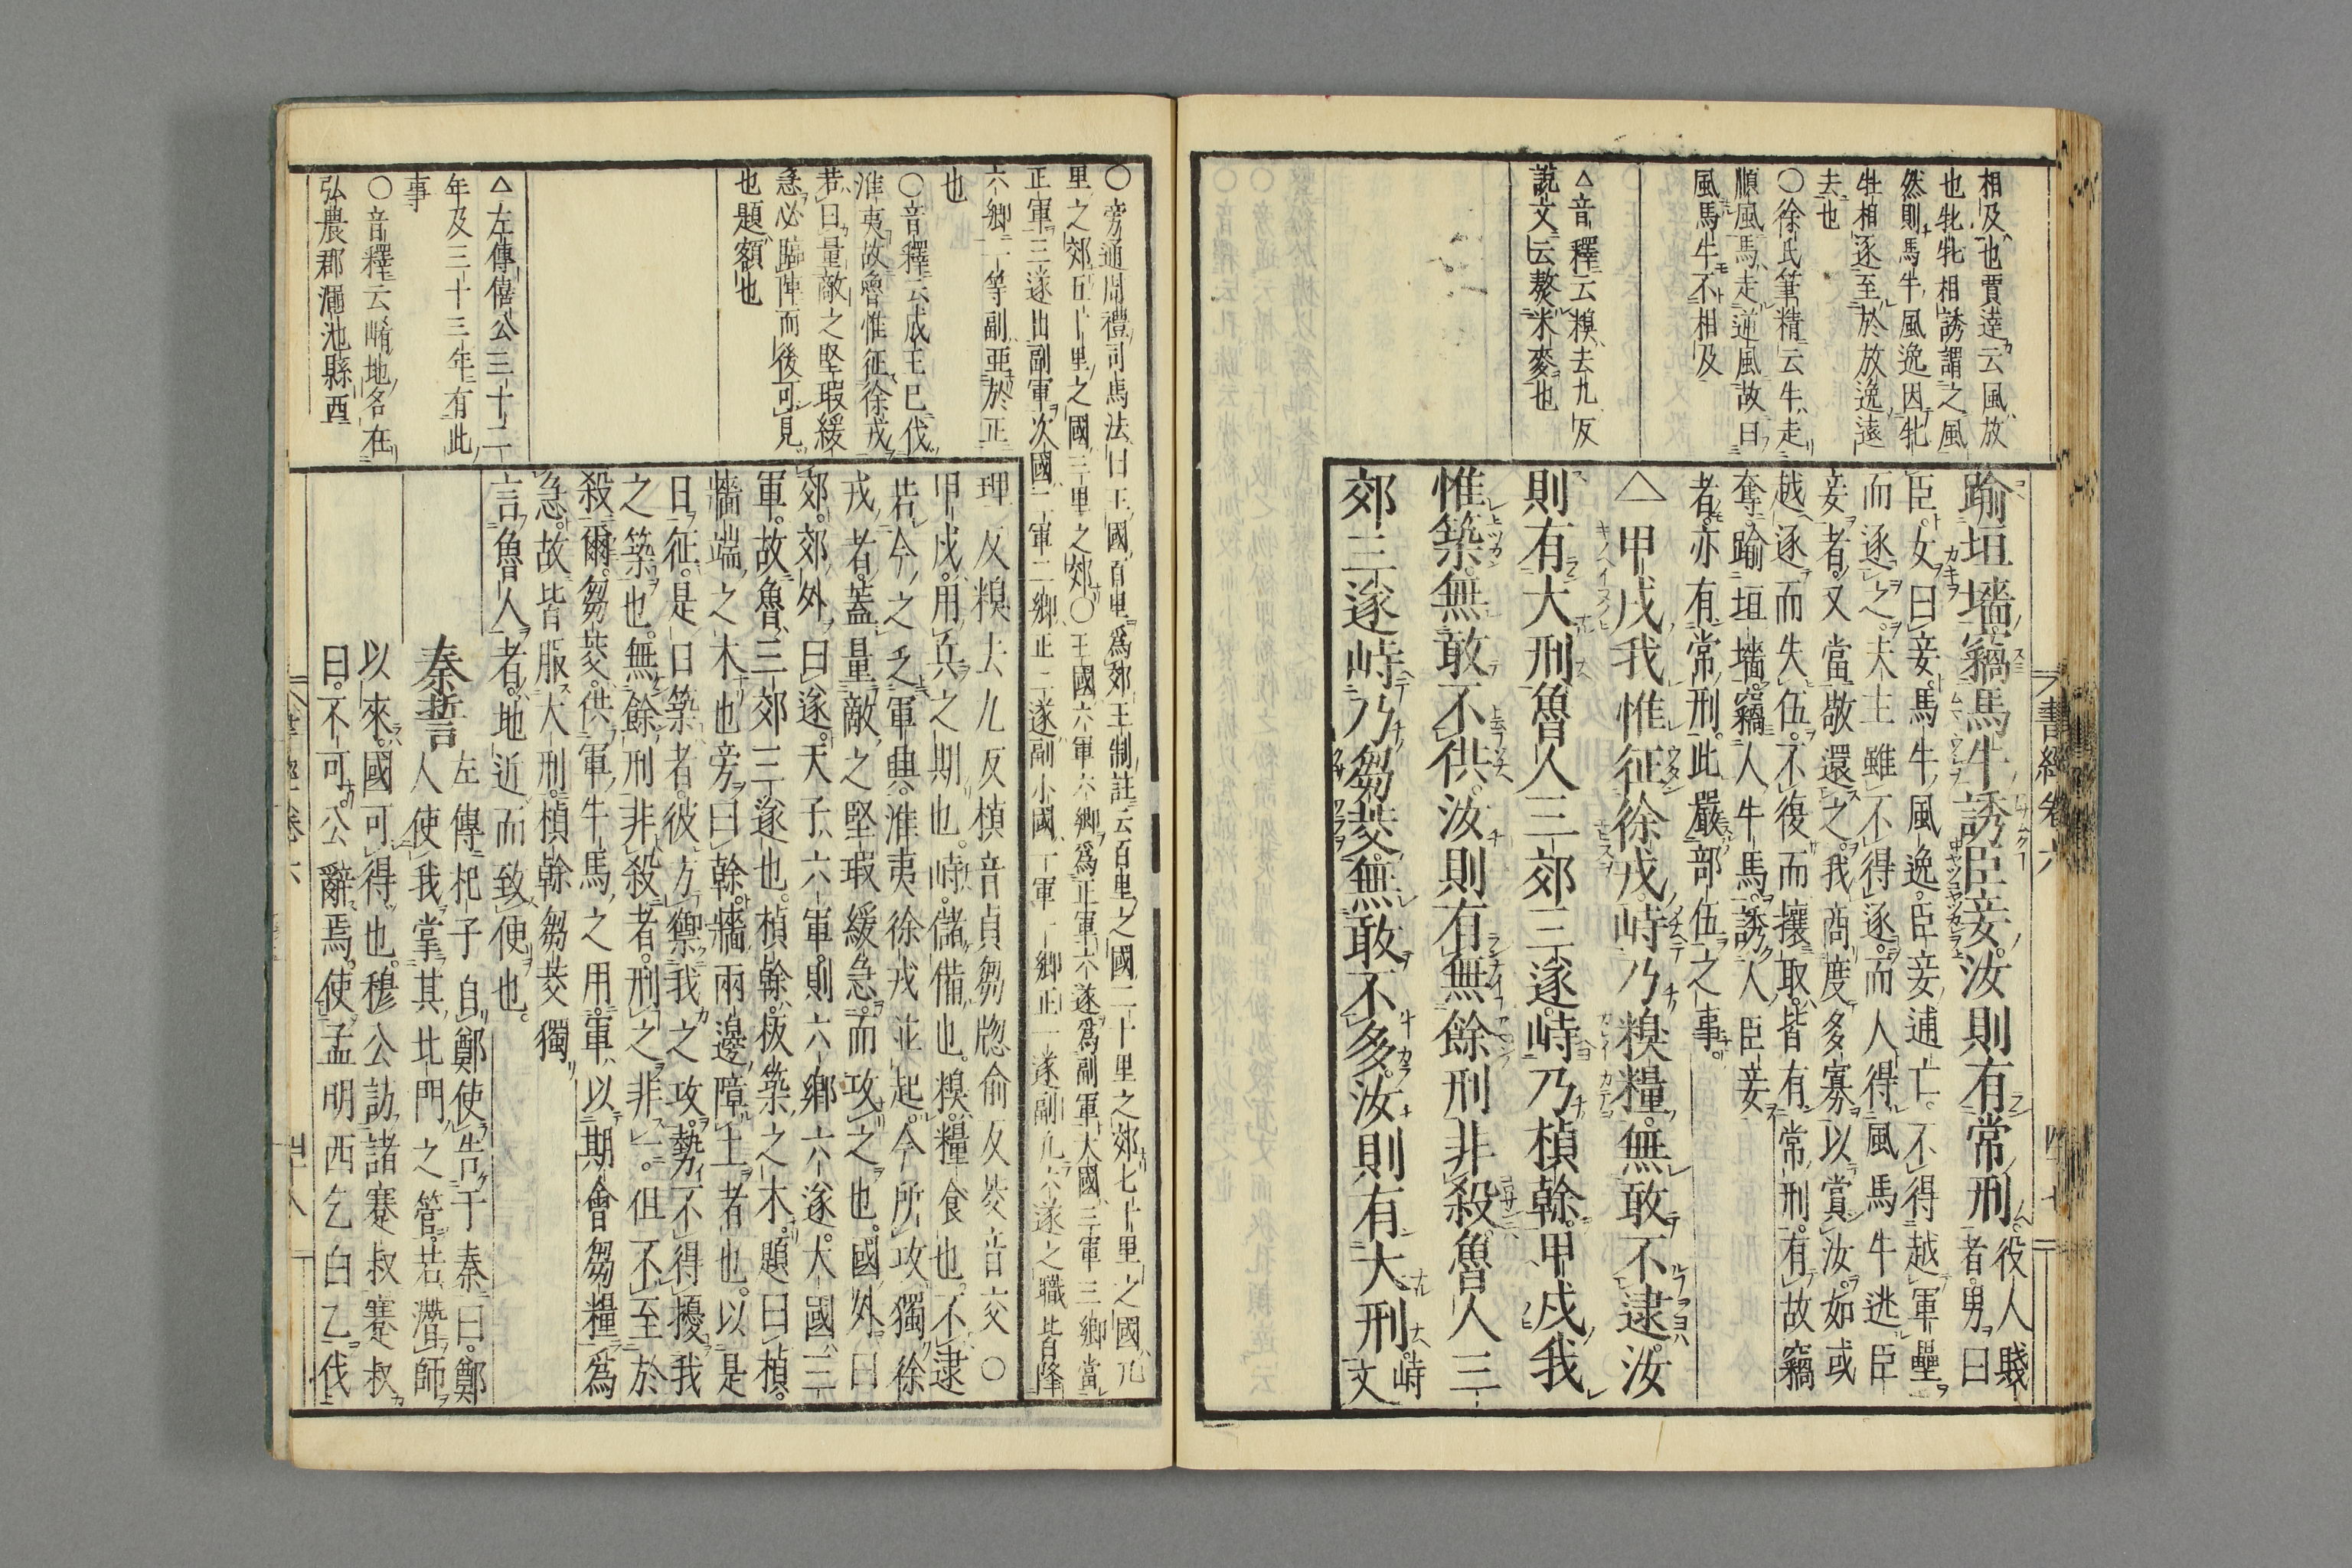 相及也賈逵云風放
也牝牝相誘謂之風
然則馬牛風逸因牝
牡相逐至於放逸遠
去也
○徐氏筆精云牛走
順風馬走逆風故曰
風馬牛不相及
△音釋云糗去九反
說文云熬米麥也
踰垣墻竊馬牛誘臣妾汝則有常刑役人賤
者男曰
臣女曰妾馬牛風逸臣妾逋亡不得越軍壘
而逐之失主雖不得逐而人得風馬牛逃臣
妾者又當敬還之我商度多寡以賞汝如或
越逐而失伍不復而攘取皆有常刑有故竊
奪踰垣墻竊人牛馬誘人臣妾
者亦有常刑此嚴部伍之事
△甲戌我惟征徐戎峙乃糗糧無敢不逮汝
則有大刑魯人三郊三遂峙乃楨榦甲戌我
惟築無敢不供汝則有無餘刑非殺魯人三
郊三遂峙乃芻茭無敢不多汝則有大刑峙
文
書經卷六 四十七
○旁通周禮司馬法曰王國百里爲郊王制註云百里之國二十里之郊七十里之國九
里之郊五十里之國三里之郊○王國六軍六鄉爲正軍六遂爲副軍大國三軍三鄉當
正軍三遂出副軍次國二軍二鄉正二遂副小國一軍一鄉正一遂副凡六遂之職皆降
六鄉一等副亞於正
也
○音釋云成王已伐
淮夷故魯惟征徐戎
若曰量敵之堅瑕緩
急必臨陣而後可見
也題額也
△左傳僖公三十二
年及三十三年有此
事
○音釋云崤地名在
弘農郡澠池縣西
理反糗去九反楨音貞芻牕俞反茭音交○
甲戌用兵之期也峙儲備也糗糧食也不逮
若今之乏軍興淮夷徐戎並起今所攻獨徐
戎者蓋量敵之堅瑕緩急而攻之也國外曰
郊郊外曰遂天子六軍則六鄉六遂大國三
軍故魯三郊三遂也楨榦板築之木題曰楨
牆端之木也旁曰榦牆兩邊障土者也以是
日征是日築者彼方禦我之攻勢不得擾我
之築也無餘刑非殺者刑之非一但不至於
殺爾芻茭供軍牛馬之用軍以期會芻糧爲
急故皆服大刑楨榦芻茭獨
言魯人者地近而致便也
秦誓左傳杞子自鄭使告于秦曰鄭
人使我掌其北門之管若潛師
以來國可得也穆公訪諸蹇叔蹇叔
曰不可公辭焉使孟明西乞白乙伐
書經卷六 四十八